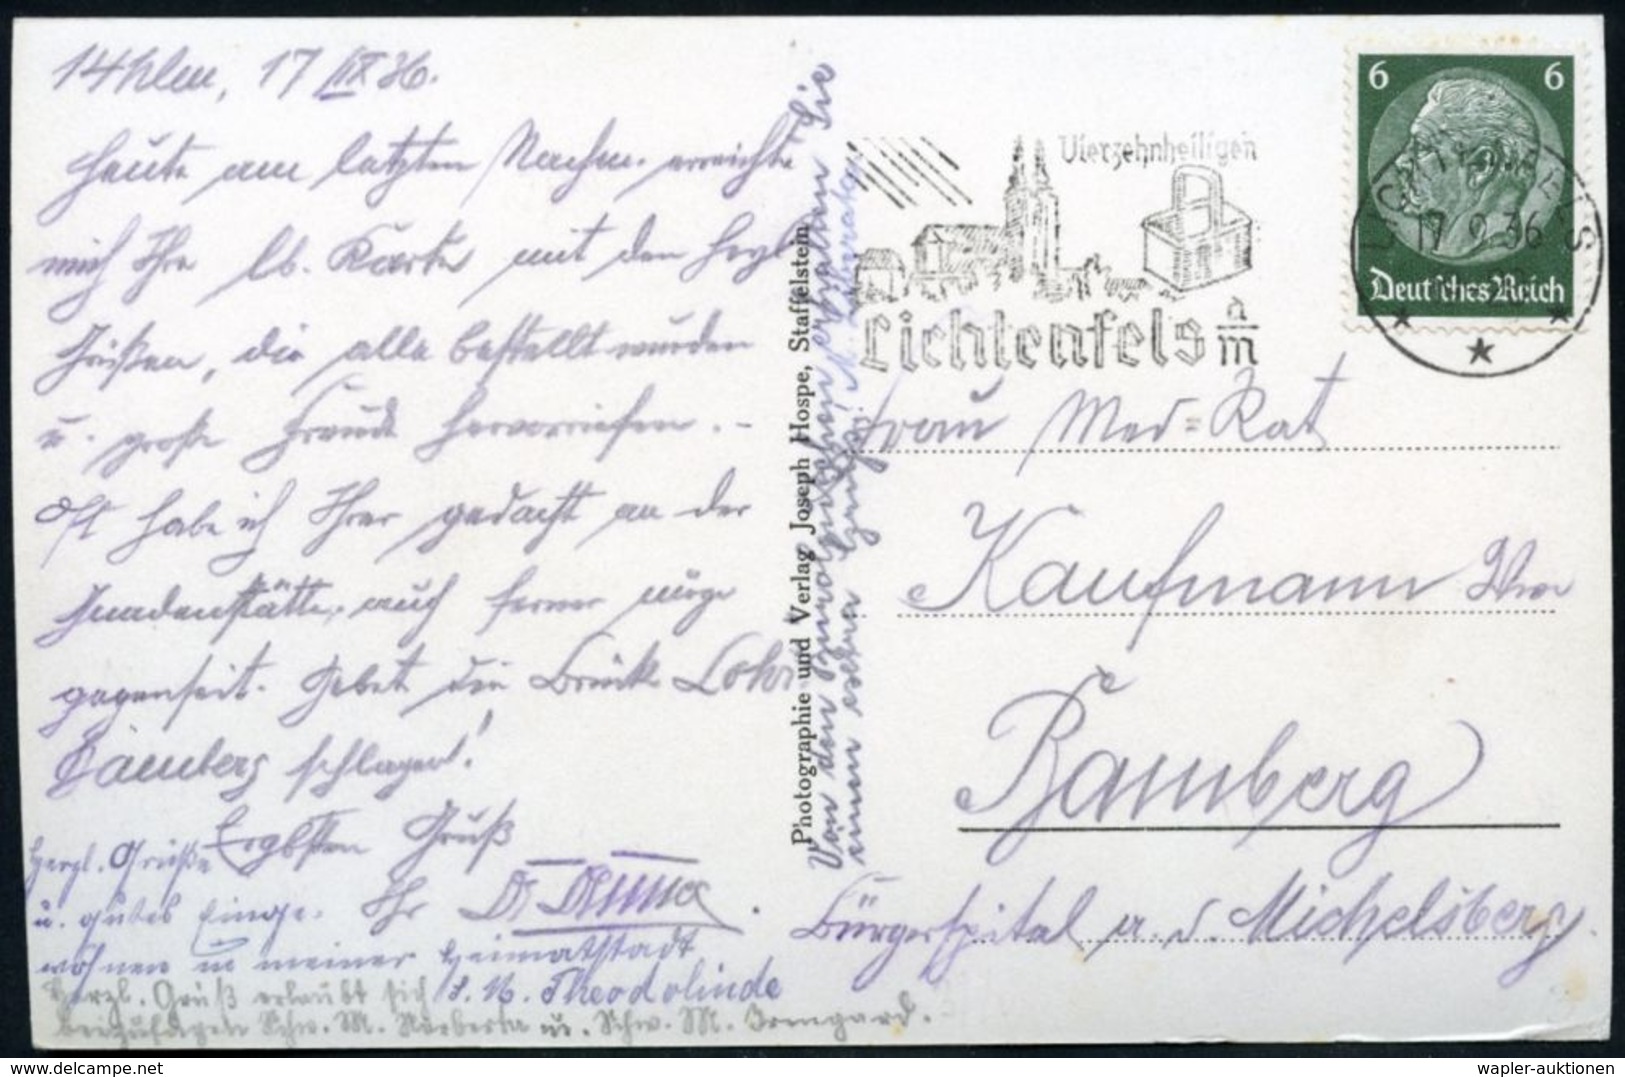 14hlen, 17 IX 36.
Heute am letzten Nachm. erreichte
mich Ihre lb. Karte mit den herzl
Grüßen, die alle bestellt wurden
u. große Freude hervorriefen. -
Oft habe ich Ihrer gedacht an der
Gnadenstätte, auch ferner möge
gegenseit. Gebet die Brücke Lohr
Bamberg schlagen!
Ergbsten Gruß
Ihr Dr
Herzl. Grüße
u. gutes
wohnen in meiner Heimatstadt
S. M. Theodolinde
Herzl. Gruß erlaubt sich
beizufügen Schw. M. Norberta u. Schw. M. Irmgard.
Photographie und Verlag Joseph Hospe, Staffelstein
Von den erhalten Sie
einen
Vierzehnheiligen
Lichtenfels a/m
LICHTENFELS
17 9 36
6 6
Deutsches Reich
Frau Med=Rat
Kaufmann Wwe
Bamberg
Bürgerspital a. d. Michelsberg.
wapler-auktionen.com
wapler-auktionen